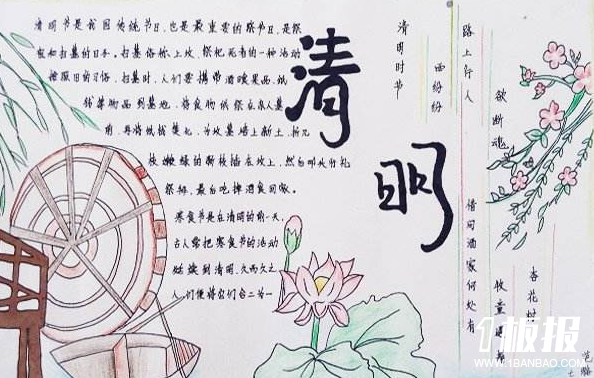 清明节是我国传统节日,也是最重要的祭节日,是祭
祖和扫墓的日子。扫墓俗称上坟,祭祀死者的一种活动
按照旧的习俗,扫墓时,人们要携带酒食果品,纸
钱等物品到墓地,将食物供祭在亲人墓
前,再将纸钱焚化,为坟墓培上新土,折几
枝嫩绿的新枝插在坟上,然后叩头行礼
祭拜,最后吃掉酒食回家。
寒食节是在清明的前一天,
古人常把寒食节的活动
延续到清明,久而久之
人们便将它们合二为一
清明
清明时节
雨纷纷
路上行人
欲断魂
借问酒家何处有
牧童遥
杏花村
1板报
WWW.1BANBAO.COM